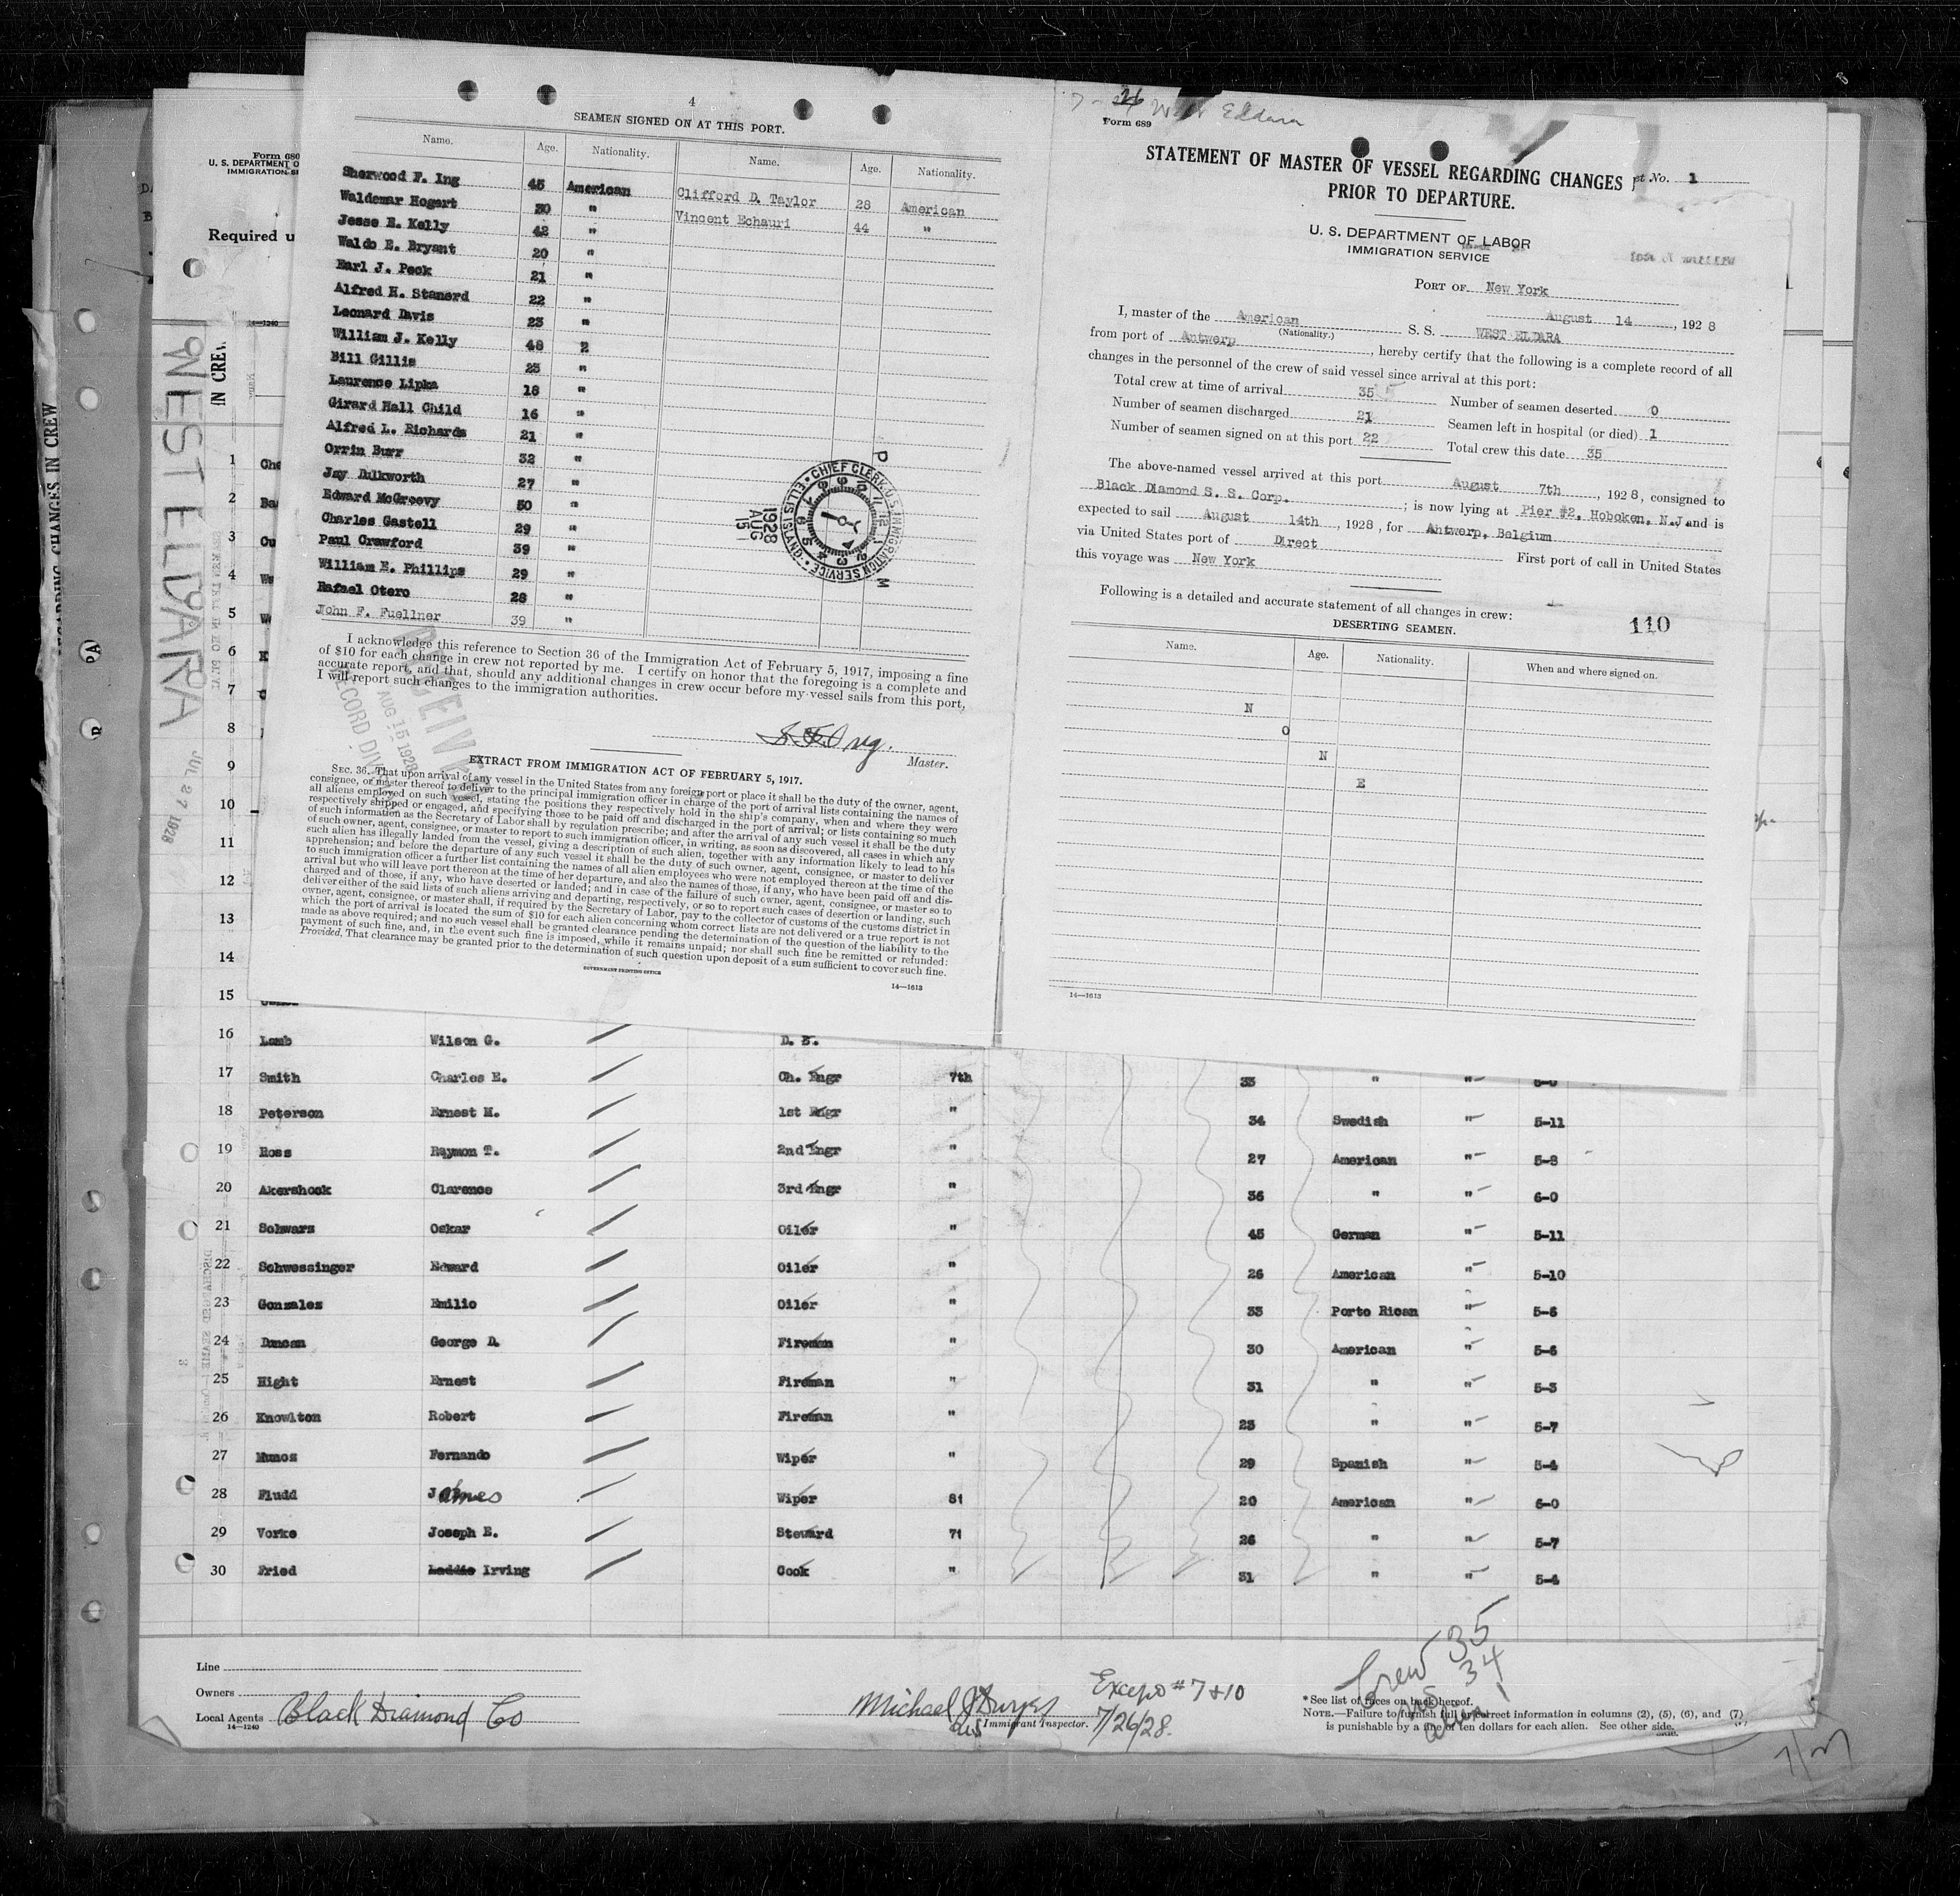 4
SEAMEN SIGNED ON AT THIS PORT.
Name. Age. Nationality. Name. Age. Nationality.
Sherwood F. Ing 45 American Clifford D. Taylor 28 American
Waldemar Hogart 30 " Vincent Echauri 44 "
Jesse E. Kelly 42 "
Waldo E. Bryant 20 "
Earl J. Peck 21 "
Alfred H. Stanerd 22 "
Leonard Davis 23 "
William J. Kelly 48 2
Bill Gillis 23 "
Laurence Lipka 18 "
Girard Hall Child 16 "
Alfred L. Richards 21 "
Orrin Burr 32 "
Jay Dulkworth 27 "
Edward McGroevy 50 "
Charles Gastell 29 "
Paul Crawford 39 "
William E. Phillips 29 "
Rafael Otero 28 "
John F. Fuellner 39 "
CHIEF CLERK, U.S. IMMIGRATION SERVICE ELLIS ISLAND
1928 AUG 15
P M
I acknowledge this reference to Section 36 of the Immigration Act of February 5, 1917, imposing a fine
of $10 for each change in crew not reported by me. I certify on honor that the foregoing is a complete and
accurate report, and that, should any additional changes in crew occur before my vessel sails from this port,
I will report such changes to the immigration authorities.
RECEIVED
AUG 15 1928
RECORD DIV
Master.
EXTRACT FROM IMMIGRATION ACT OF FEBRUARY 5, 1917.
SEC. 36. That upon arrival of any vessel in the United States from any foreign port or place it shall be the duty of the owner, agent,
consignee, or master thereof to deliver to the principal immigration officer in charge of the port of arrival lists containing the names of
all aliens employed on such vessel, stating the positions they respectively hold in the ship's company, when and where they were
respectively shipped or engaged, and specifying those to be paid off and discharged in the port of arrival; or lists containing so much
of such information as the Secretary of Labor shall by regulation prescribe; and after the arrival of any such vessel it shall be the duty
of such owner, agent, consignee, or master to report to such immigration officer, in writing, as soon as discovered, all cases in which any
such alien has illegally landed from the vessel, giving a description of such alien, together with any information likely to lead to his
apprehension; and before the departure of any such vessel it shall be the duty of such owner, agent, consignee, or master to deliver
to such immigration officer a further list containing the names of all alien employees who were not employed thereon at the time of the
arrival but who will leave port thereon at the time of her departure, and also the names of those, if any, who have been paid off and dis-
charged and of those, if any, who have deserted or landed; and in case of the failure of such owner, agent, consignee, or master so to
deliver either of the said lists of such aliens arriving and departing, respectively, or so to report such cases of desertion or landing, such
owner, agent, consignee, or master shall, if required by the Secretary of Labor, pay to the collector of customs of the customs district in
which the port of arrival is located the sum of $10 for each alien concerning whom correct lists are not delivered or a true report is not
made as above required; and no such vessel shall be granted clearance pending the determination of the question of the liability to the
payment of such fine, and, in the event such fine is imposed, while it remains unpaid; nor shall such fine be remitted or refunded:
Provided, That clearance may be granted prior to the determination of such question upon deposit of a sum sufficient to cover such fine.
GOVERNMENT PRINTING OFFICE
14—1613
West Eldara
Form 689
STATEMENT OF MASTER OF VESSEL REGARDING CHANGES
PRIOR TO DEPARTURE.
et No. 1
U. S. DEPARTMENT OF LABOR
IMMIGRATION SERVICE
PORT OF New York
August 14, 1928
I, master of the American S. S. WEST ELDARA
(Nationality.)
from port of Antwerp, hereby certify that the following is a complete record of all
changes in the personnel of the crew of said vessel since arrival at this port:
Total crew at time of arrival 35 Number of seamen deserted 0
Number of seamen discharged 21 Seamen left in hospital (or died) 1
Number of seamen signed on at this port 22 Total crew this date 35
The above-named vessel arrived at this port August 7th, 1928, consigned to
Black Diamond S. S. Corp.; is now lying at Pier #2, Hoboken, N.J. and is
expected to sail August 14th, 1928, for Antwerp, Belgium
via United States port of Direct First port of call in United States
this voyage was New York
Following is a detailed and accurate statement of all changes in crew:
DESERTING SEAMEN.
110
Name. Age. Nationality. When and where signed on.
N
O
N
E
14—1613
Form 680
U. S. DEPARTMENT O
IMMIGRATION SE
Required u
14—1240
IN CREW
REGARDING CHANGES IN CREW
WEST ELDARA
JUL 27 1928
1 Che
2 Ba
3 Cu
4 We
5 W
6 K
7
8
9
10
11
12
13
14
15
16 Lamb Wilson G. D. E.
17 Smith Charles E. Ch. Engr 7th 33 " " 6-0
18 Peterson Ernest M. 1st Engr " 34 Swedish " 5-11
19 Ross Raymon T. 2nd Engr " 27 American " 5-8
20 Akershook Clarence 3rd Engr " 36 " " 6-0
21 Schwarz Oskar Oiler " 45 German " 5-11
22 Schwessinger Edward Oiler " 26 American " 5-10
23 Gonzales Emilio Oiler " 33 Porto Rican " 5-6
24 Duncan George D. Fireman " 30 American " 5-6
25 Hight Ernest Fireman " 31 " " 5-3
26 Knowlton Robert Fireman " 23 " " 5-7
27 Munoz Fernando Wiper " 29 Spanish " 5-4
28 Fludd James Wiper 81 20 American " 6-0
29 Vorke Joseph E. Steward 71 26 " " 5-7
30 Fried Laddie Irving Cook " 31 " " 5-4
Line
Owners
Local Agents Black Diamond Co
14—1240
Michael J Duryes
Immigrant Inspector.
Except #7+10
7/26/28.
Crew 35
34
*See list of races on back hereof.
NOTE.—Failure to furnish full or correct information in columns (2), (5), (6), and (7)
is punishable by a fine of ten dollars for each alien. See other side.
7/27